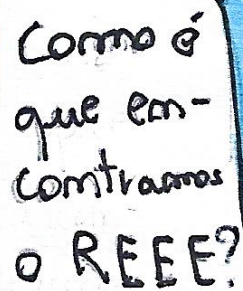 Como é
que em-
comtramos
o REEE?